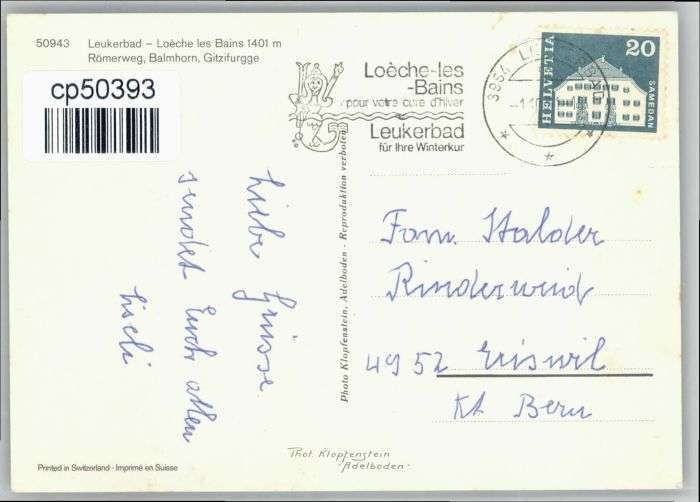 50943 Leukerbad – Loèche les Bains 1401 m
Römerweg, Balmhorn, Gitzifurgge
cp50393
Loèche-les
-Bains
pour votre cure d'hiver
Leukerbad
für Ihre Winterkur
3954
HELVETIA
20
SAMEDAN
Liebe Grüsse
sendet Euch allen
Photo Klopfenstein, Adelboden - Reproduktion verboten
Fam. Halder
Rinderweid
4952 Eriswil
Kt Bern
Phot. Klopfenstein
-Adelboden-
Printed in Switzerland - Imprimé en Suisse